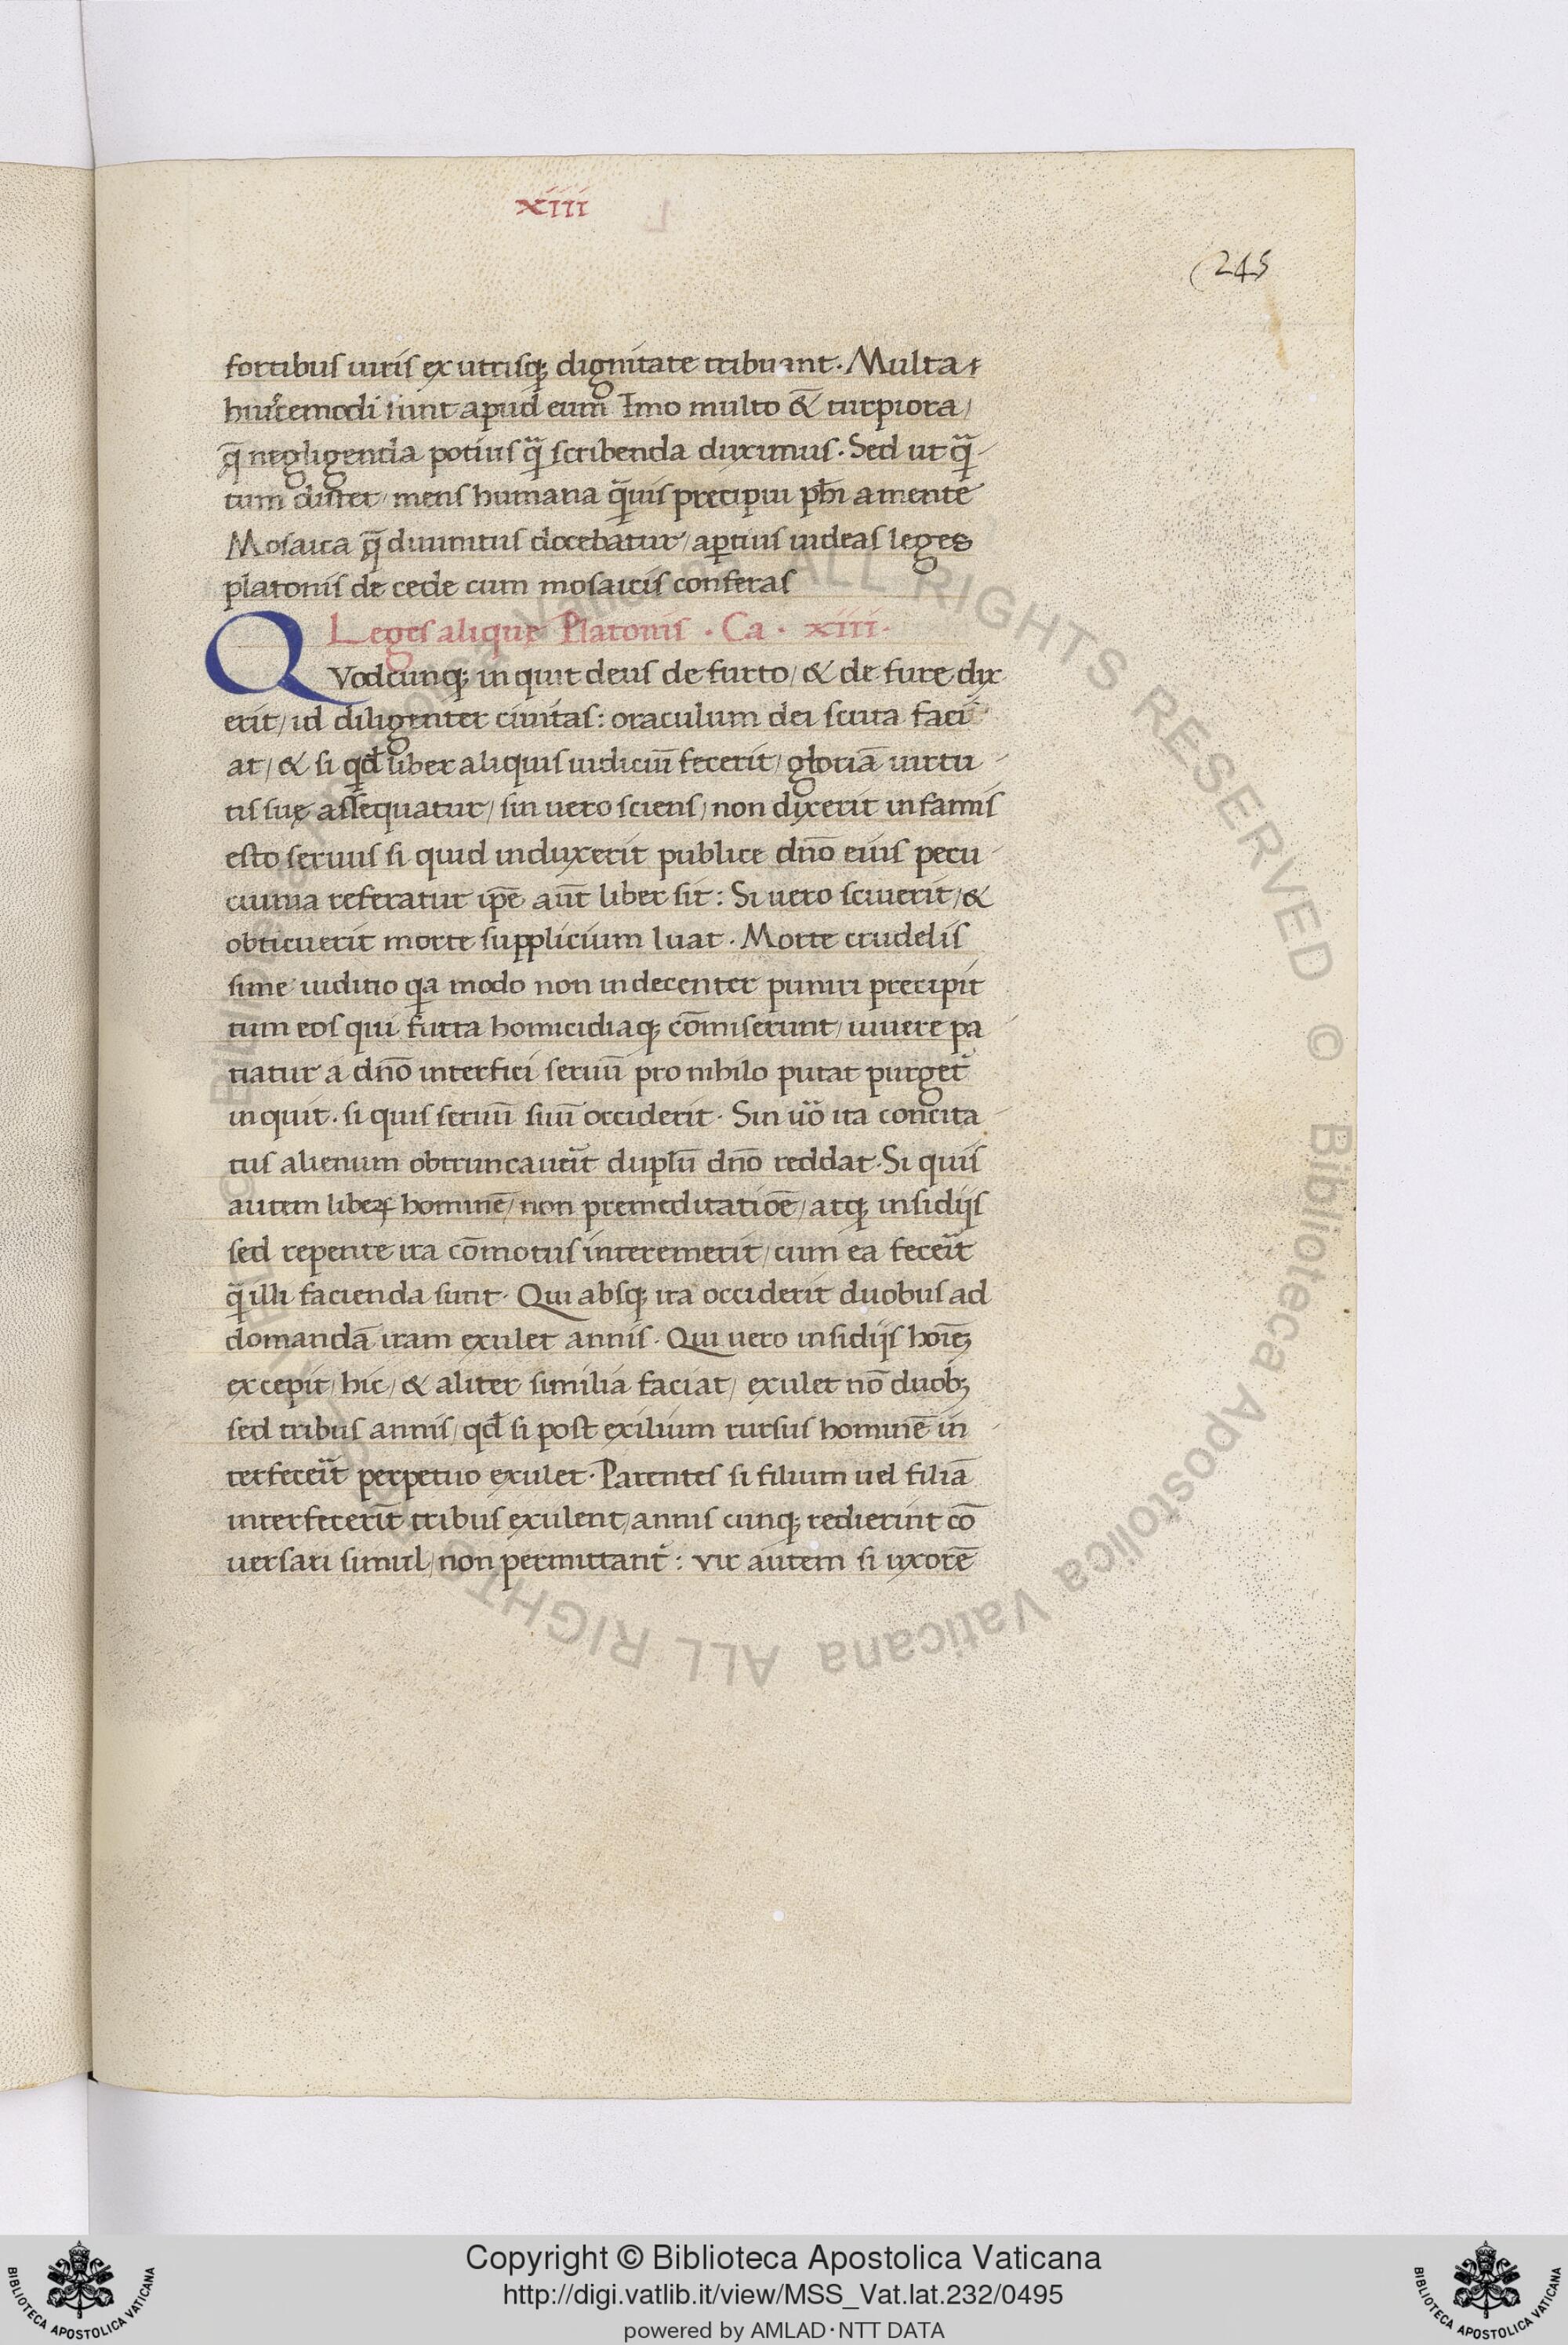 xiii
245
fortibus uiris ex utrisq; dignitate tribuant. Multa
huiꝰcemodi sunt apud eum Imo multo & turpiora/
q̄ negligenda potius q̄ scribenda duximus. Sed ut q̄-
tum distet/ mens humana q̄uis precipui ph̄i a mente
Mosaica q̄ diuinitus docebatur/ ap̱tius uideas leges
platonis de cede cum mosaicis conferas
Leges alique Platonis . Ca . xiii.
QVodcunq; inquit deus de furto/ & de fure dix
erit/ id diligenter ciuitas: oraculum dei scuta faci
at/ & si qd̄ liber aliquis iudiciū fecerit/ gloriā uirtu-
tis suę assequatur/ sin uero sciens/ non dixerit infamis
esto seruus si quid induxerit publice dn̄o eius pecu-
cunia referatur ip̄e aut̄ liber sit: Si uero sciuerit/ &
obticuerit morte supplicium luat. Morte crudelis
sime iuditio qa modo non indecenter puniri precipit
tum eos qui furta homicidiaq; cōmiserunt/ uiuere pa-
tiatur a dn̄o interfici seruū pro nihilo putat purget᷑
inquit. si quis seruū suū occiderit. Sin uo᷑ ira concita-
tus alienum obtruncauerit duplū dn̄o reddat. Si quis
autem liberꝝ hominē/ non premeditatiōe/ atq; insidijs
sed repente ira cōmotus interemerit/ cum ea feceit᷑
q̄ illi facienda sunt. Qui absq; ira occiderit duobus ad
domandā iram exulet annis. Qui uero insidijs hoiēȝ
excepit/ hic/ & aliter similia faciat/ exulet nō duob;
sed tribus annis/ qd̄ si post exilium rursus hominē in-
terfeceit᷑ perpetuo exulet. Parentes si filium uel filiā
interfecerīt tribus exulent/ annis cunq; redierint cō
uersari simul/ non permittant᷑: vir autem si uxorē
© Biblioteca Apostolica Vaticana ALL RIGHTS RESERVED © Biblioteca Apostolica Vaticana ALL RIGHTS RESERVED
Copyright © Biblioteca Apostolica Vaticana
http://digi.vatlib.it/view/MSS_Vat.lat.232/0495
powered by AMLAD·NTT DATA
BIBLIOTECA APOSTOLICA VATICANA
BIBLIOTECA APOSTOLICA VATICANA